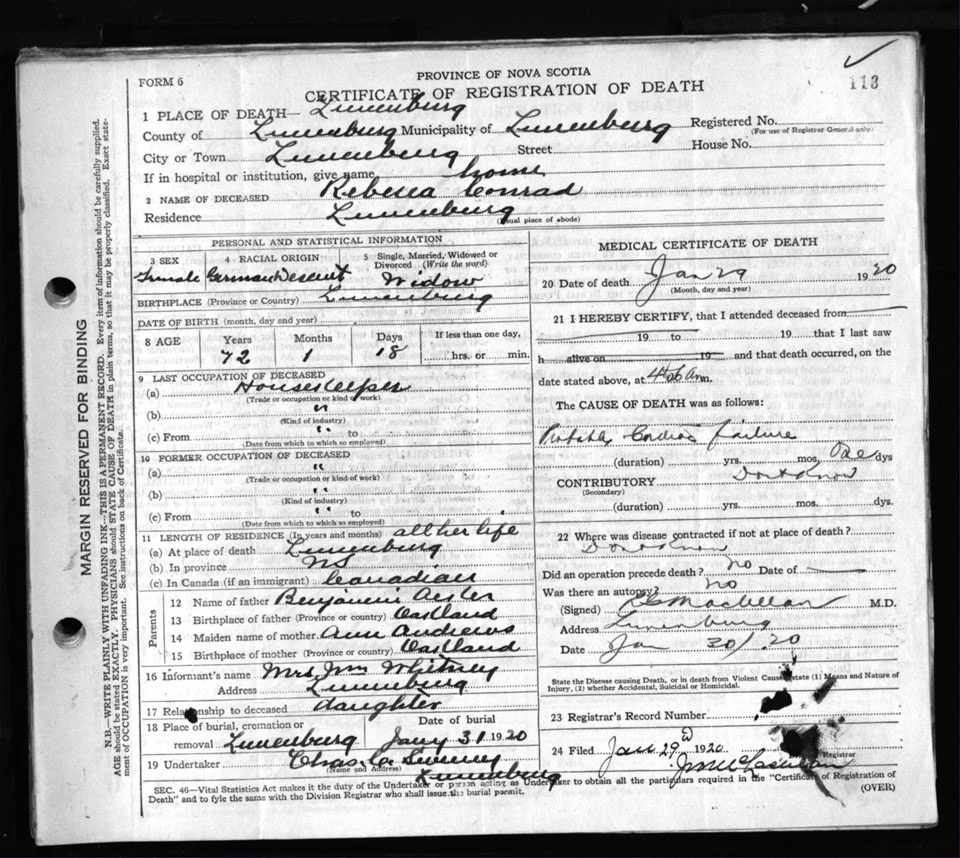 FORM 6
PROVINCE OF NOVA SCOTIA
113
CERTIFICATE OF REGISTRATION OF DEATH
1 PLACE OF DEATH— Lunenburg
County of Lunenburg Municipality of Lunenburg Registered No.
(For use of Registrar General only)
City or Town Lunenburg Street House No.
If in hospital or institution, give name home
2 NAME OF DECEASED Rebecca Conrad
Residence Lunenburg
(Usual place of abode)
PERSONAL AND STATISTICAL INFORMATION
3 SEX Female
4 RACIAL ORIGIN German Descent
5 Single, Married, Widowed or Divorced (Write the word) Widow
BIRTHPLACE (Province or Country) Lunenburg
DATE OF BIRTH (month, day and year)
8 AGE Years 72 Months 1 Days 18 If less than one day, hrs. or min.
9 LAST OCCUPATION OF DECEASED
(a) Housekeeper
(Trade or occupation or kind of work)
(b) "
(Kind of industry)
(c) From " to
(Date from which to which so employed)
10 FORMER OCCUPATION OF DECEASED
(a) "
(Trade or occupation or kind of work)
(b) "
(Kind of industry)
(c) From " to
(Date from which to which so employed)
11 LENGTH OF RESIDENCE (In years and months) all her life
(a) At place of death Lunenburg
(b) In province NS
(c) In Canada (if an immigrant) Canadian
Parents
12 Name of father Benjamin
13 Birthplace of father (Province or country)
14 Maiden name of mother Ann Andrews
15 Birthplace of mother (Province or country)
16 Informant's name Mrs Wm Whitney
Address Lunenburg
17 Relationship to deceased daughter
18 Place of burial, cremation or removal Lunenburg Date of burial Jany 31 1920
19 Undertaker Chas
(Name and Address) Lunenburg
MEDICAL CERTIFICATE OF DEATH
20 Date of death Jan 29 1920
(Month, day and year)
21 I HEREBY CERTIFY, that I attended deceased from
19 to 19 that I last saw
h alive on 19 and that death occurred, on the
date stated above, at m.
The CAUSE OF DEATH was as follows:
Probably Cardiac failure
(duration) yrs. mos. One dys
CONTRIBUTORY Dont know
(Secondary)
(duration) yrs. mos. dys.
22 Where was disease contracted if not at place of death?
Dont know
Did an operation precede death? no Date of
Was there an autopsy? no
(Signed) MacLellan M.D.
Address Lunenburg
Date Jan 30/20
State the Disease causing Death, or in death from Violent Causes state (1) Means and Nature of
Injury, (2) whether Accidental, Suicidal or Homicidal.
23 Registrar's Record Number
24 Filed Jan 29 1920
Registrar
SEC. 46—Vital Statistics Act makes it the duty of the Undertaker or person acting as Undertaker to obtain all the particulars required in the "Certificate of Registration of
Death" and to fyle the same with the Division Registrar who shall issue the burial permit.
(OVER)
MARGIN RESERVED FOR BINDING
N.B.—WRITE PLAINLY WITH UNFADING INK—THIS IS A PERMANENT RECORD. Every item of information should be carefully supplied.
AGE should be stated EXACTLY. PHYSICIANS should STATE CAUSE OF DEATH in plain terms, so that it may be properly classified. Exact state-
ment of OCCUPATION is very important. See instructions on back of Certificate.